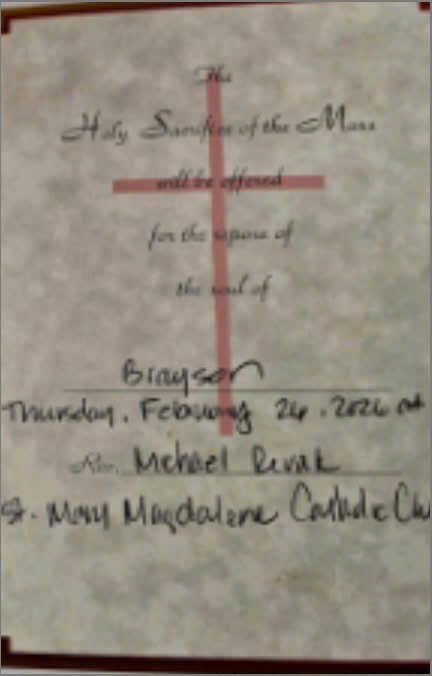 The
Holy Sacrifice of the Mass
will be offered
for the repose of
the soul of
Brayson
Thursday, February 26, 2026 at
Rev. Michael
St. Mary Magdalene Catholic Chu